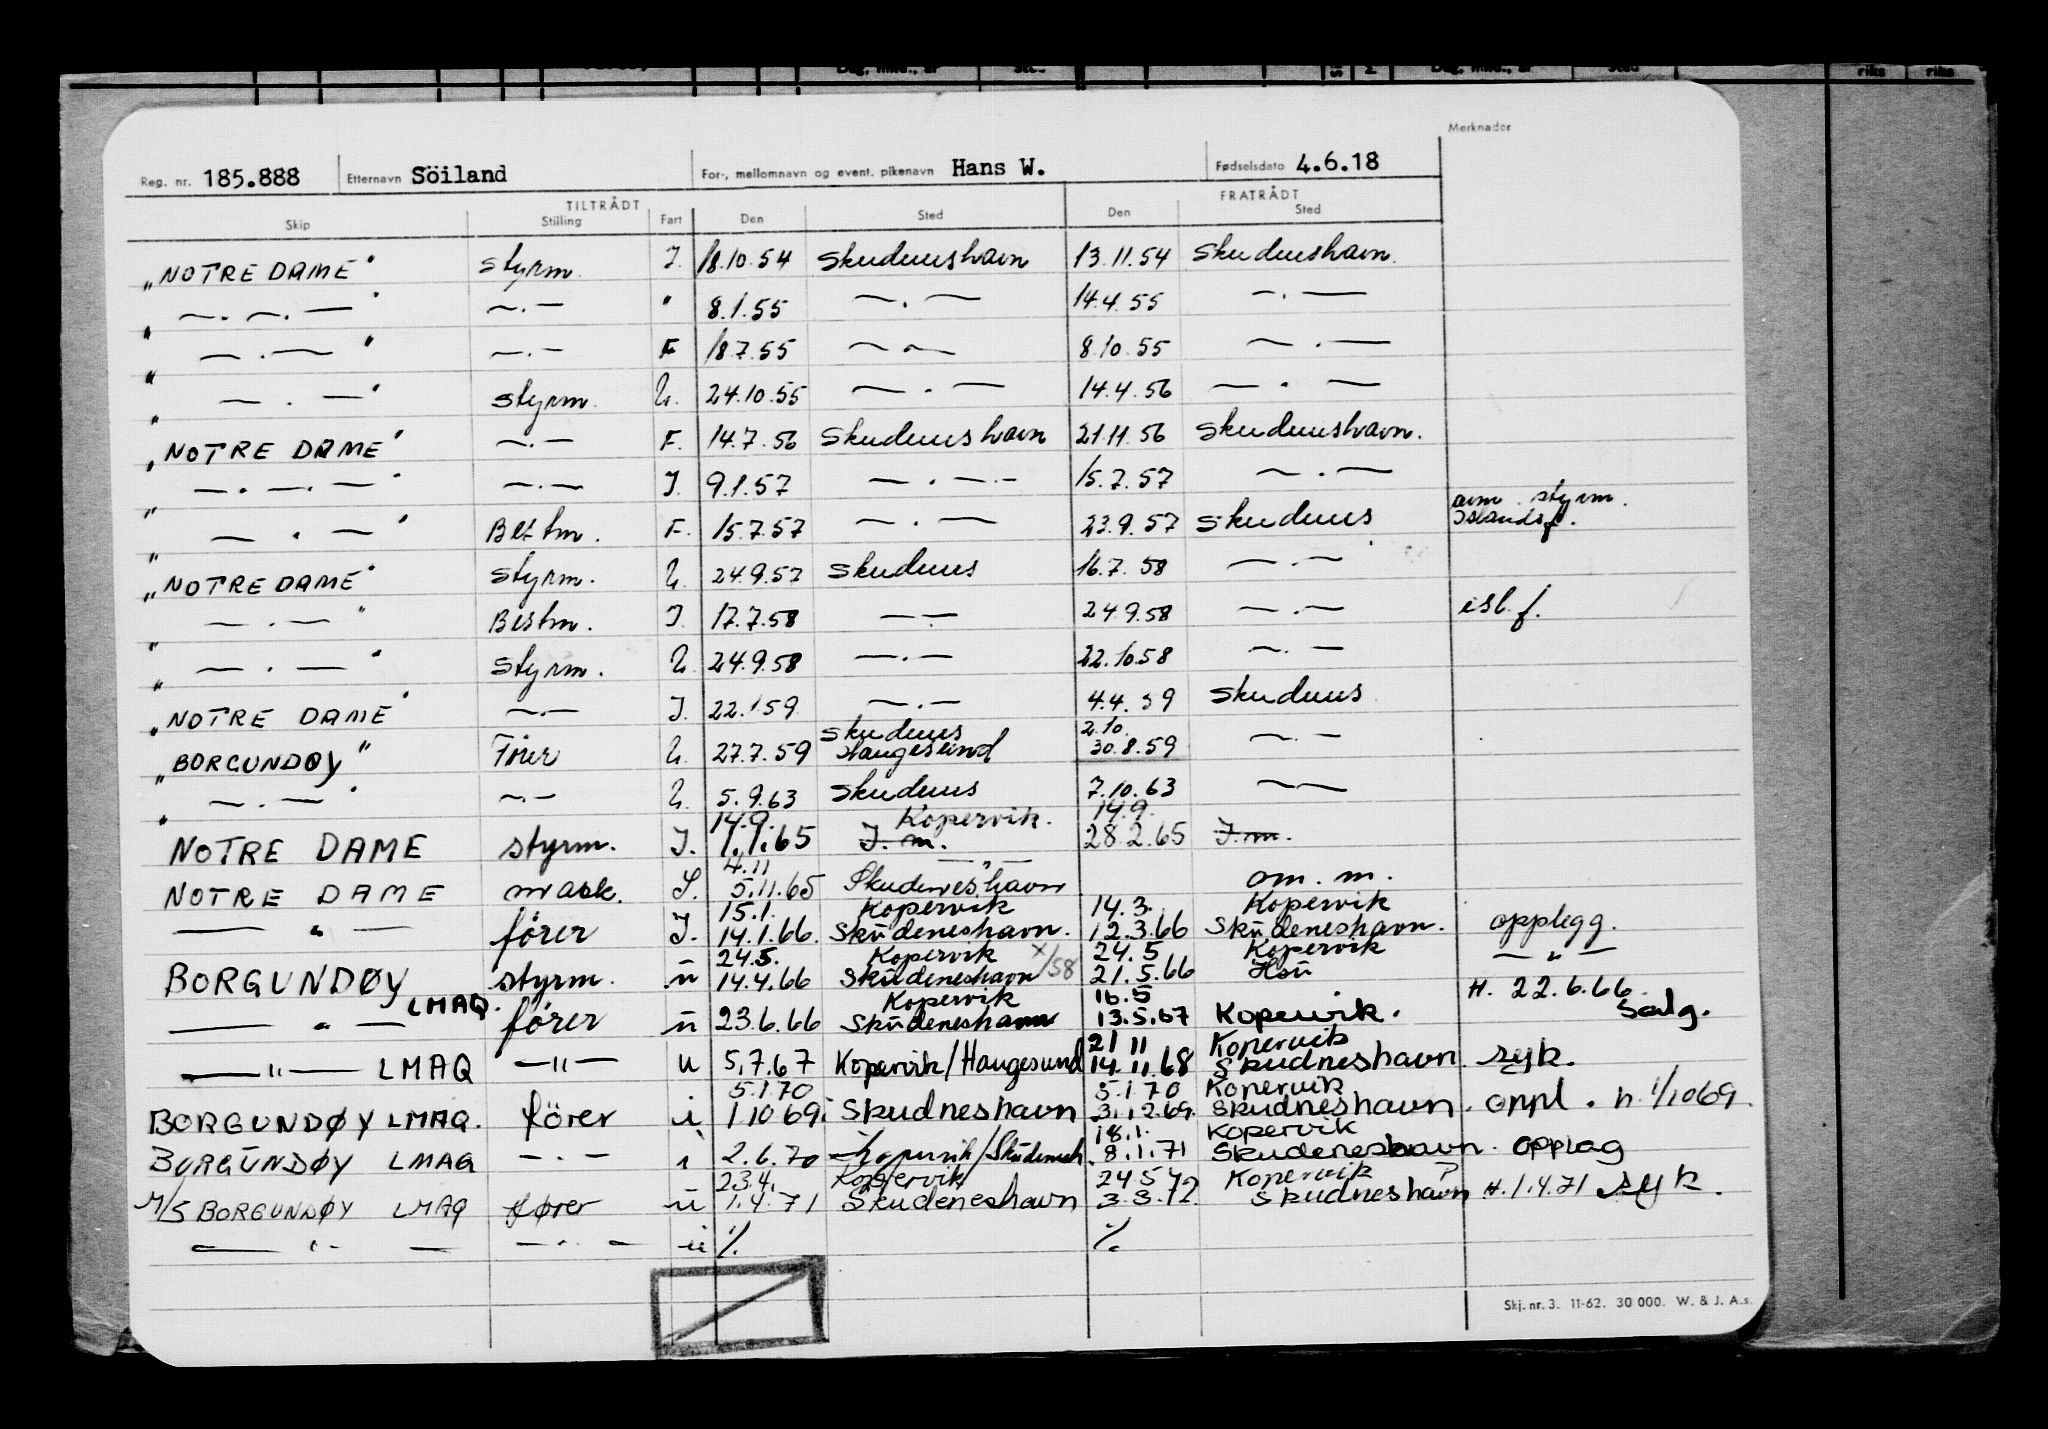 Merknader
Reg. nr. 185.888 Etternavn Söiland For-, mellomnavn og event. pikenavn Hans W. Fødselsdato 4.6.18
TILTRÅDT FRATRÅDT
Skip Stilling Fart Den Sted Den Sted
„NOTRE DAME" styrm. I. 18.10.54 Skudeneshavn 13.11.54 Skudeneshavn.
„ —.—.— " —.— " 8.1.55 —.— 14.4.55 —.—
„ —.— " —.— F 18.7.55 —.— 8.10.55 —.—
„ —.— " styrm. U. 24.10.55 —.— 14.4.56 —.—
„NOTRE DAME" —.— F. 14.7.56 Skudeneshavn 21.11.56 Skudeneshavn.
„ —.—.— " —.— I. 9.1.57 —.—.— 15.7.57 —.—
„ —.— " Bestm. F. 15.7.57 —.— 23.9.57 Skudenes anm. styrm. Islandsf.
„NOTRE DAME" styrm. U. 24.9.57 Skudenes 16.7.58 —.—
„ —.— " Bestm. I. 17.7.58 —.— 24.9.58 —.— isl.f.
„ —.— " styrm. U. 24.9.58 —.— 22.10.58 —.—
„NOTRE DAME" —.— I. 22.1.59 —.— 4.4.59 Skudenes
Skudenes 2.10.
„BORGUNDØY" Förer U. 27.7.59 Haugesund 30.8.59 —.—
„ —.— " —.— U. 5.9.63 Skudenes 7.10.63 —.—
14.9. Kopervik. 14.9.
NOTRE DAME styrm. I. 1.1.65 I.m. 28.2.65 I.m.
4.11 — " —
NOTRE DAME mask. I. 5.11.65 Skudeneshavn om. m.
15.1. Kopervik 14.3. Kopervik
— " — förer I. 14.1.66. Skudeneshavn. 12.3.66 Skudeneshavn. opplegg.
24.5. Kopervik x/58 24.5 Kopervik
BORGUNDØY styrm. u 14.4.66 Skudeneshavn 21.5.66 Hsu — " —
Kopervik 16.5 H. 22.6.66.
— " — LMAQ. förer u 23.6.66 Skudeneshavn 13.5.67 Kopervik. Salg.
21 11 Kopervik
— " — LMAQ —"— u 5.7.67 Kopervik/Haugesund 14.11.68 Skudneshavn. syk.
5.1.70 5.1.70 Kopervik
BORGUNDØY LMAQ. förer i 1 10 69. Skudneshavn 31.12.69. Skudneshavn. oppl. h. 1/1069.
18.1. Kopervik
BORGUNDØY LMAQ —.— i 2.6.70 Kopervik/Skudenesh. 8.1.71 Skudeneshavn. opplag
23.4. Kopervik 24 5 72 Kopervik ?
M/S BORGUNDØY LMAQ fører u 1.4.71 Skudeneshavn 3.3.72. Skudneshavn H.1.4.71 syk.
— " — — —.— ui %. %.
Skj. nr. 3. 11-62. 30 000. W. & J. A.s.